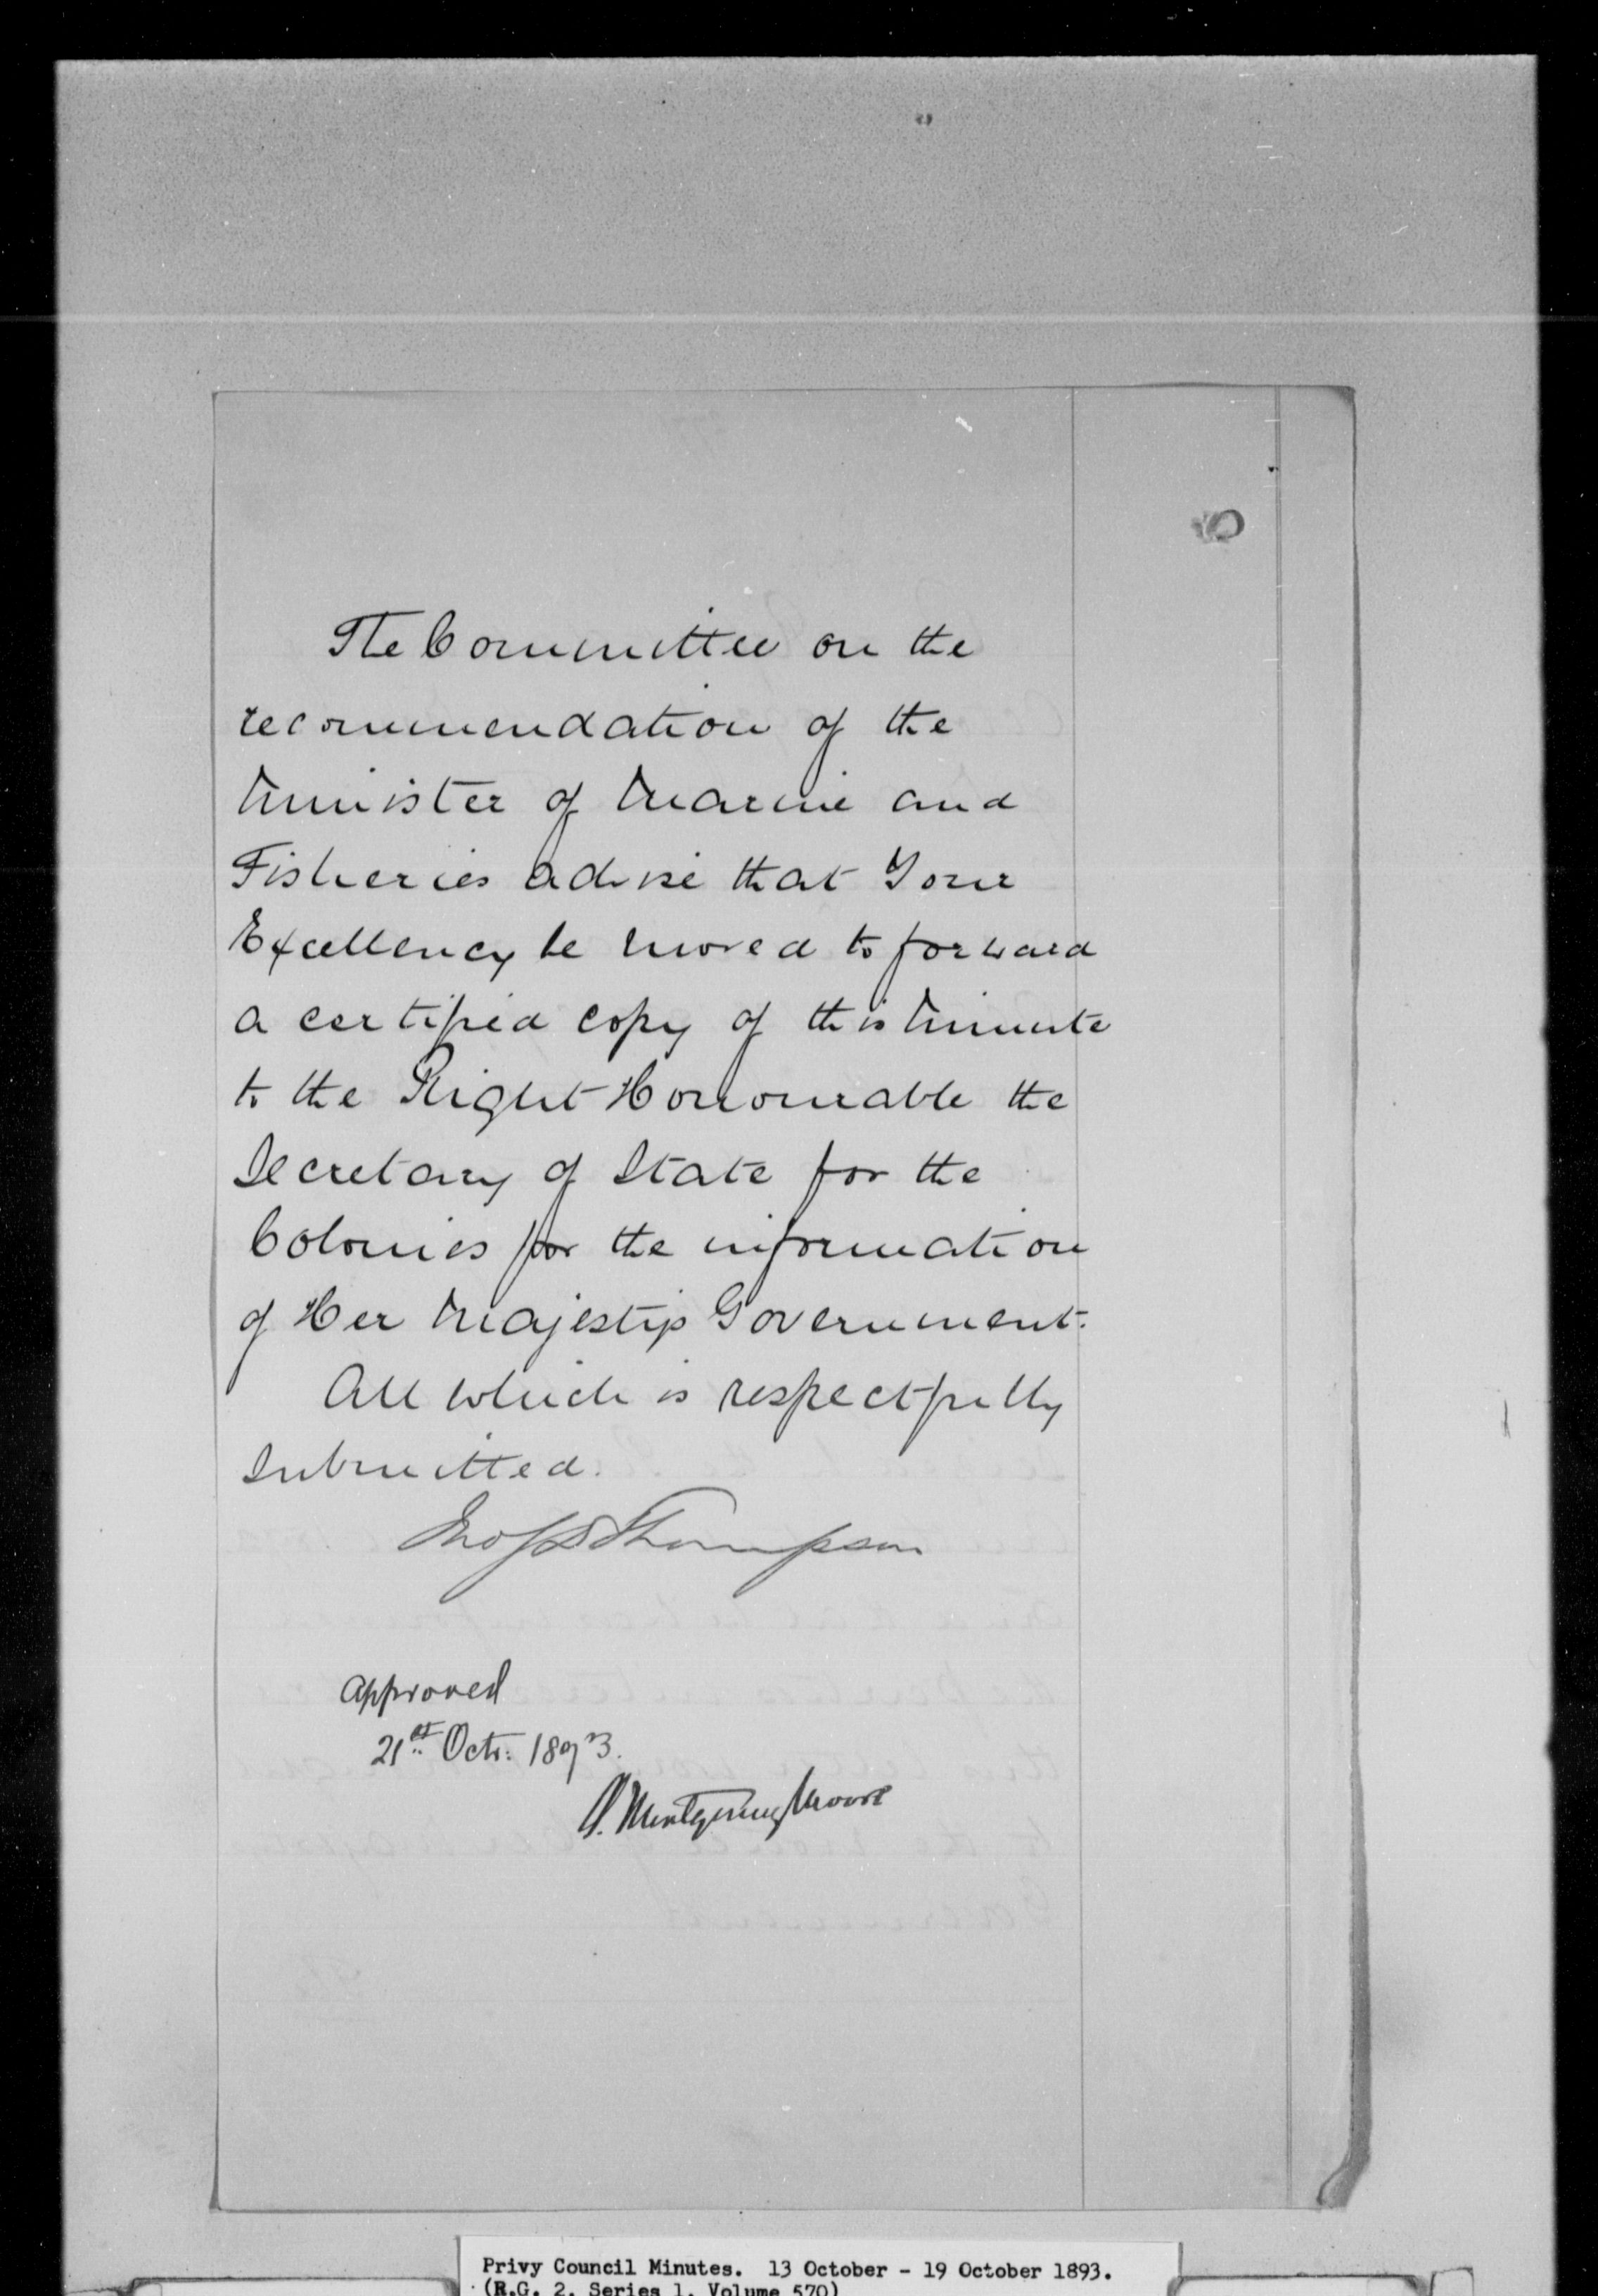 The Committee on the
recommendation of the
Minister of Marine and
Fisheries advise that Your
Excellency be moved to forward
a certified copy of this Minute
to the Right Honourable the
Secretary of State for the
Colonies for the information
of Her Majesty's Government.
All which is respectfully
submitted.
Jno S D Thompson
Approved
21st Octr: 1893.
A. Montgomery Moore
Privy Council Minutes. 13 October - 19 October 1893.
(R.G. 2, Series 1, Volume 570)